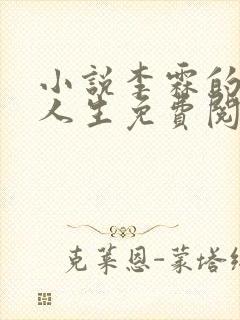 小說李霖的
人生免費閱
克萊恩-蒙塔